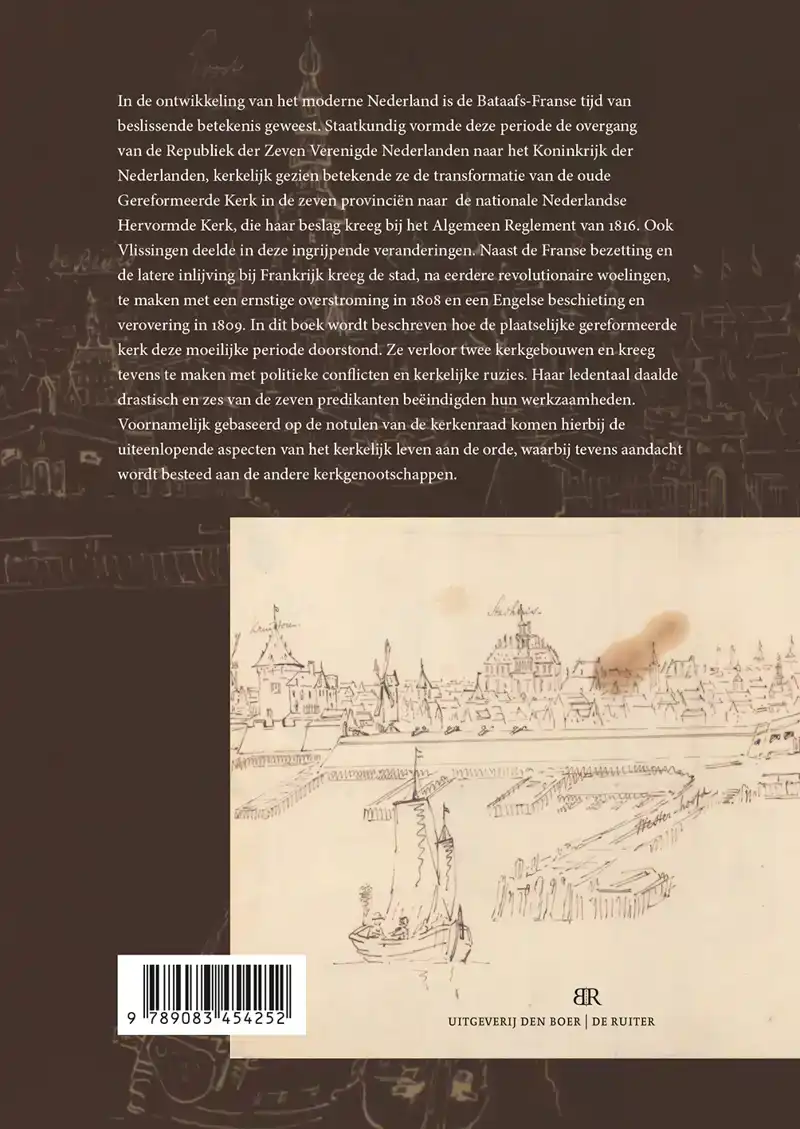 In de ontwikkeling van het moderne Nederland is de Bataafs-Franse tijd van
beslissende betekenis geweest. Staatkundig vormde deze periode de overgang
van de Republiek der Zeven Verenigde Nederlanden naar het Koninkrijk der
Nederlanden, kerkelijk gezien betekende ze de transformatie van de oude
Gereformeerde Kerk in de zeven provinciën naar de nationale Nederlandse
Hervormde Kerk, die haar beslag kreeg bij het Algemeen Reglement van 1816. Ook
Vlissingen deelde in deze ingrijpende veranderingen. Naast de Franse bezetting en
de latere inlijving bij Frankrijk kreeg de stad, na eerdere revolutionaire woelingen,
te maken met een ernstige overstroming in 1808 en een Engelse beschieting en
verovering in 1809. In dit boek wordt beschreven hoe de plaatselijke gereformeerde
kerk deze moeilijke periode doorstond. Ze verloor twee kerkgebouwen en kreeg
tevens te maken met politieke conflicten en kerkelijke ruzies. Haar ledental daalde
drastisch en zes van de zeven predikanten beëindigden hun werkzaamheden.
Voornamelijk gebaseerd op de notulen van de kerkenraad komen hierbij de
uiteenlopende aspecten van het kerkelijk leven aan de orde, waarbij tevens aandacht
wordt besteed aan de andere kerkgenootschappen.
Stadhuis
Wester hooft
9 789083 454252
BR
UITGEVERIJ DEN BOER | DE RUITER